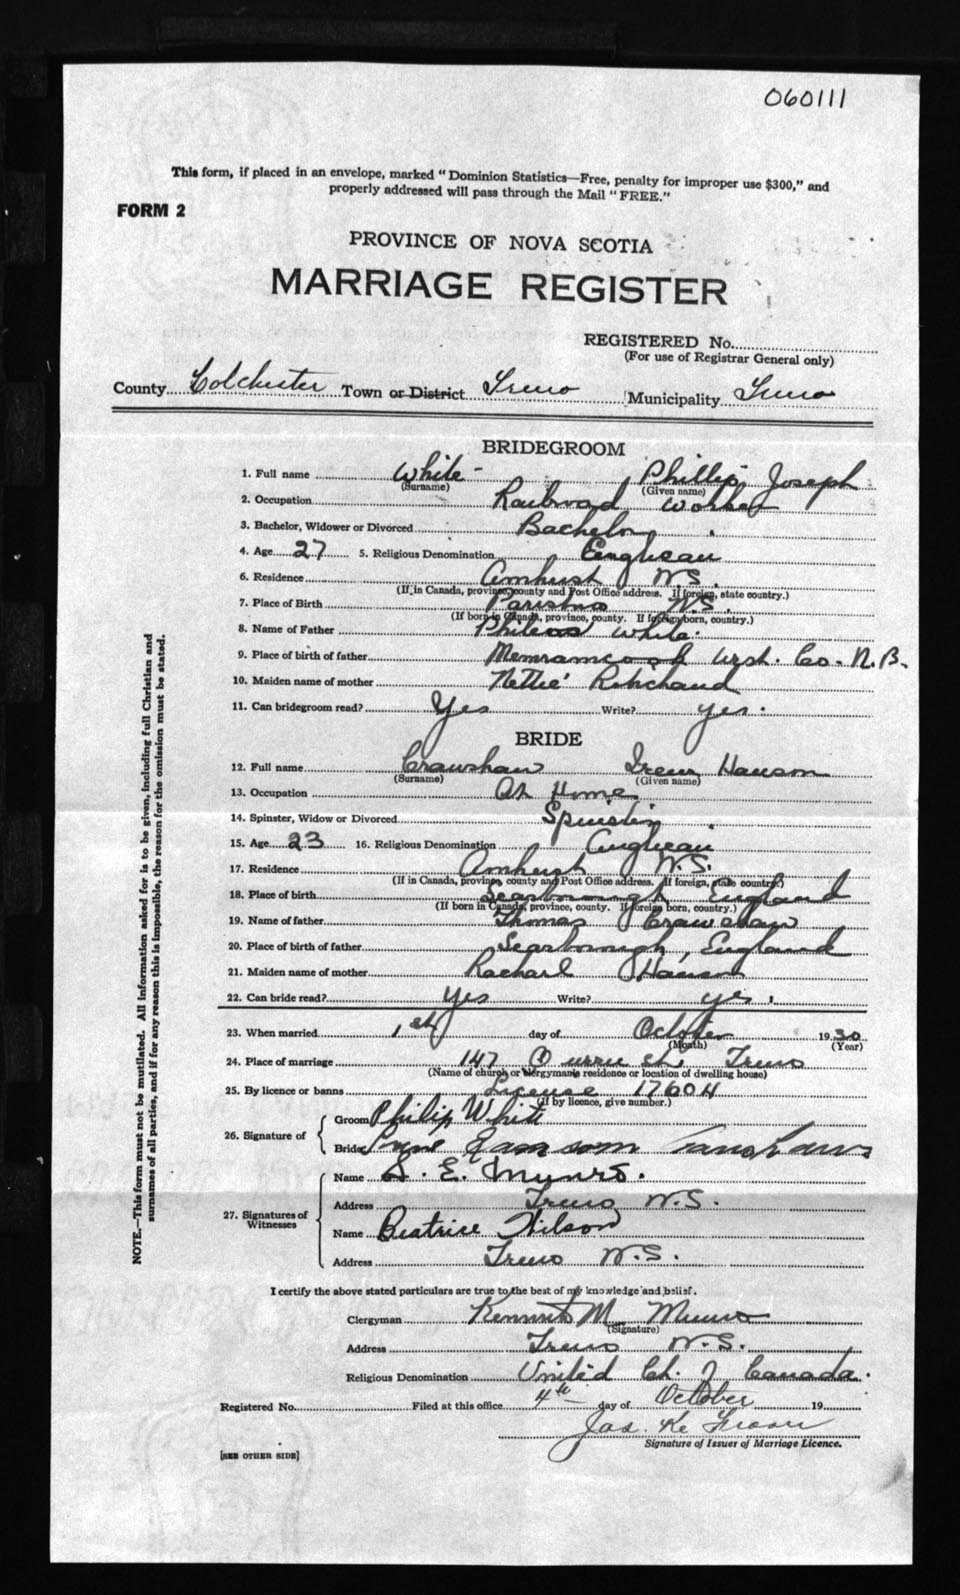 060111
This form, if placed in an envelope, marked "Dominion Statistics—Free, penalty for improper use $300," and
properly addressed will pass through the Mail "FREE."
FORM 2
PROVINCE OF NOVA SCOTIA
MARRIAGE REGISTER
REGISTERED No.
(For use of Registrar General only)
County Colchester Town or District Truro Municipality Truro
BRIDEGROOM
1. Full name White Phillip Joseph
(Surname) (Given name)
2. Occupation Railroad worker
3. Bachelor, Widower or Divorced Bachelor
4. Age 27 5. Religious Denomination Anglican
6. Residence Amherst N.S.
(If in Canada, province, county and Post Office address. If foreign, state country.)
7. Place of Birth Parrsboro N.S.
(If born in Canada, province, county. If foreign born, country.)
8. Name of Father Phileas White
9. Place of birth of father Memramcook West. Co. N.B.
10. Maiden name of mother Nettie Robichaud
11. Can bridegroom read? Yes Write? yes.
BRIDE
12. Full name Crawshaw Irene Hanson
(Surname) (Given name)
13. Occupation At Home
14. Spinster, Widow or Divorced Spinster
15. Age 23 16. Religious Denomination Anglican
17. Residence Amherst N.S.
(If in Canada, province, county and Post Office address. If foreign, state country.)
18. Place of birth Scarborough England
(If born in Canada, province, county. If foreign born, country.)
19. Name of father Thomas Crawshaw
20. Place of birth of father Scarborough, England
21. Maiden name of mother Rachael Hanson
22. Can bride read? Yes Write? yes.
23. When married 1st day of October 1930
(Month) (Year)
24. Place of marriage 147 St. Truro
(Name of church or clergymans residence or location of dwelling house)
25. By licence or banns License 17604
(If by licence, give number.)
26. Signature of
Groom Philip White
Bride
27. Signatures of Witnesses
Name E. Munro.
Address Truro N.S.
Name Beatrice Wilson
Address Truro N.S.
I certify the above stated particulars are true to the best of my knowledge and belief.
Clergyman Kenneth M. Munro
(Signature)
Address Truro N.S.
Religious Denomination United Ch. of Canada.
Registered No. Filed at this office 4th day of October 19
Jas.
Signature of Issuer of Marriage Licence.
[SEE OTHER SIDE]
NOTE.—This form must not be mutilated. All information asked for is to be given, including full Christian and
surnames of all parties, and if for any reason this is impossible, the reason for the omission must be stated.